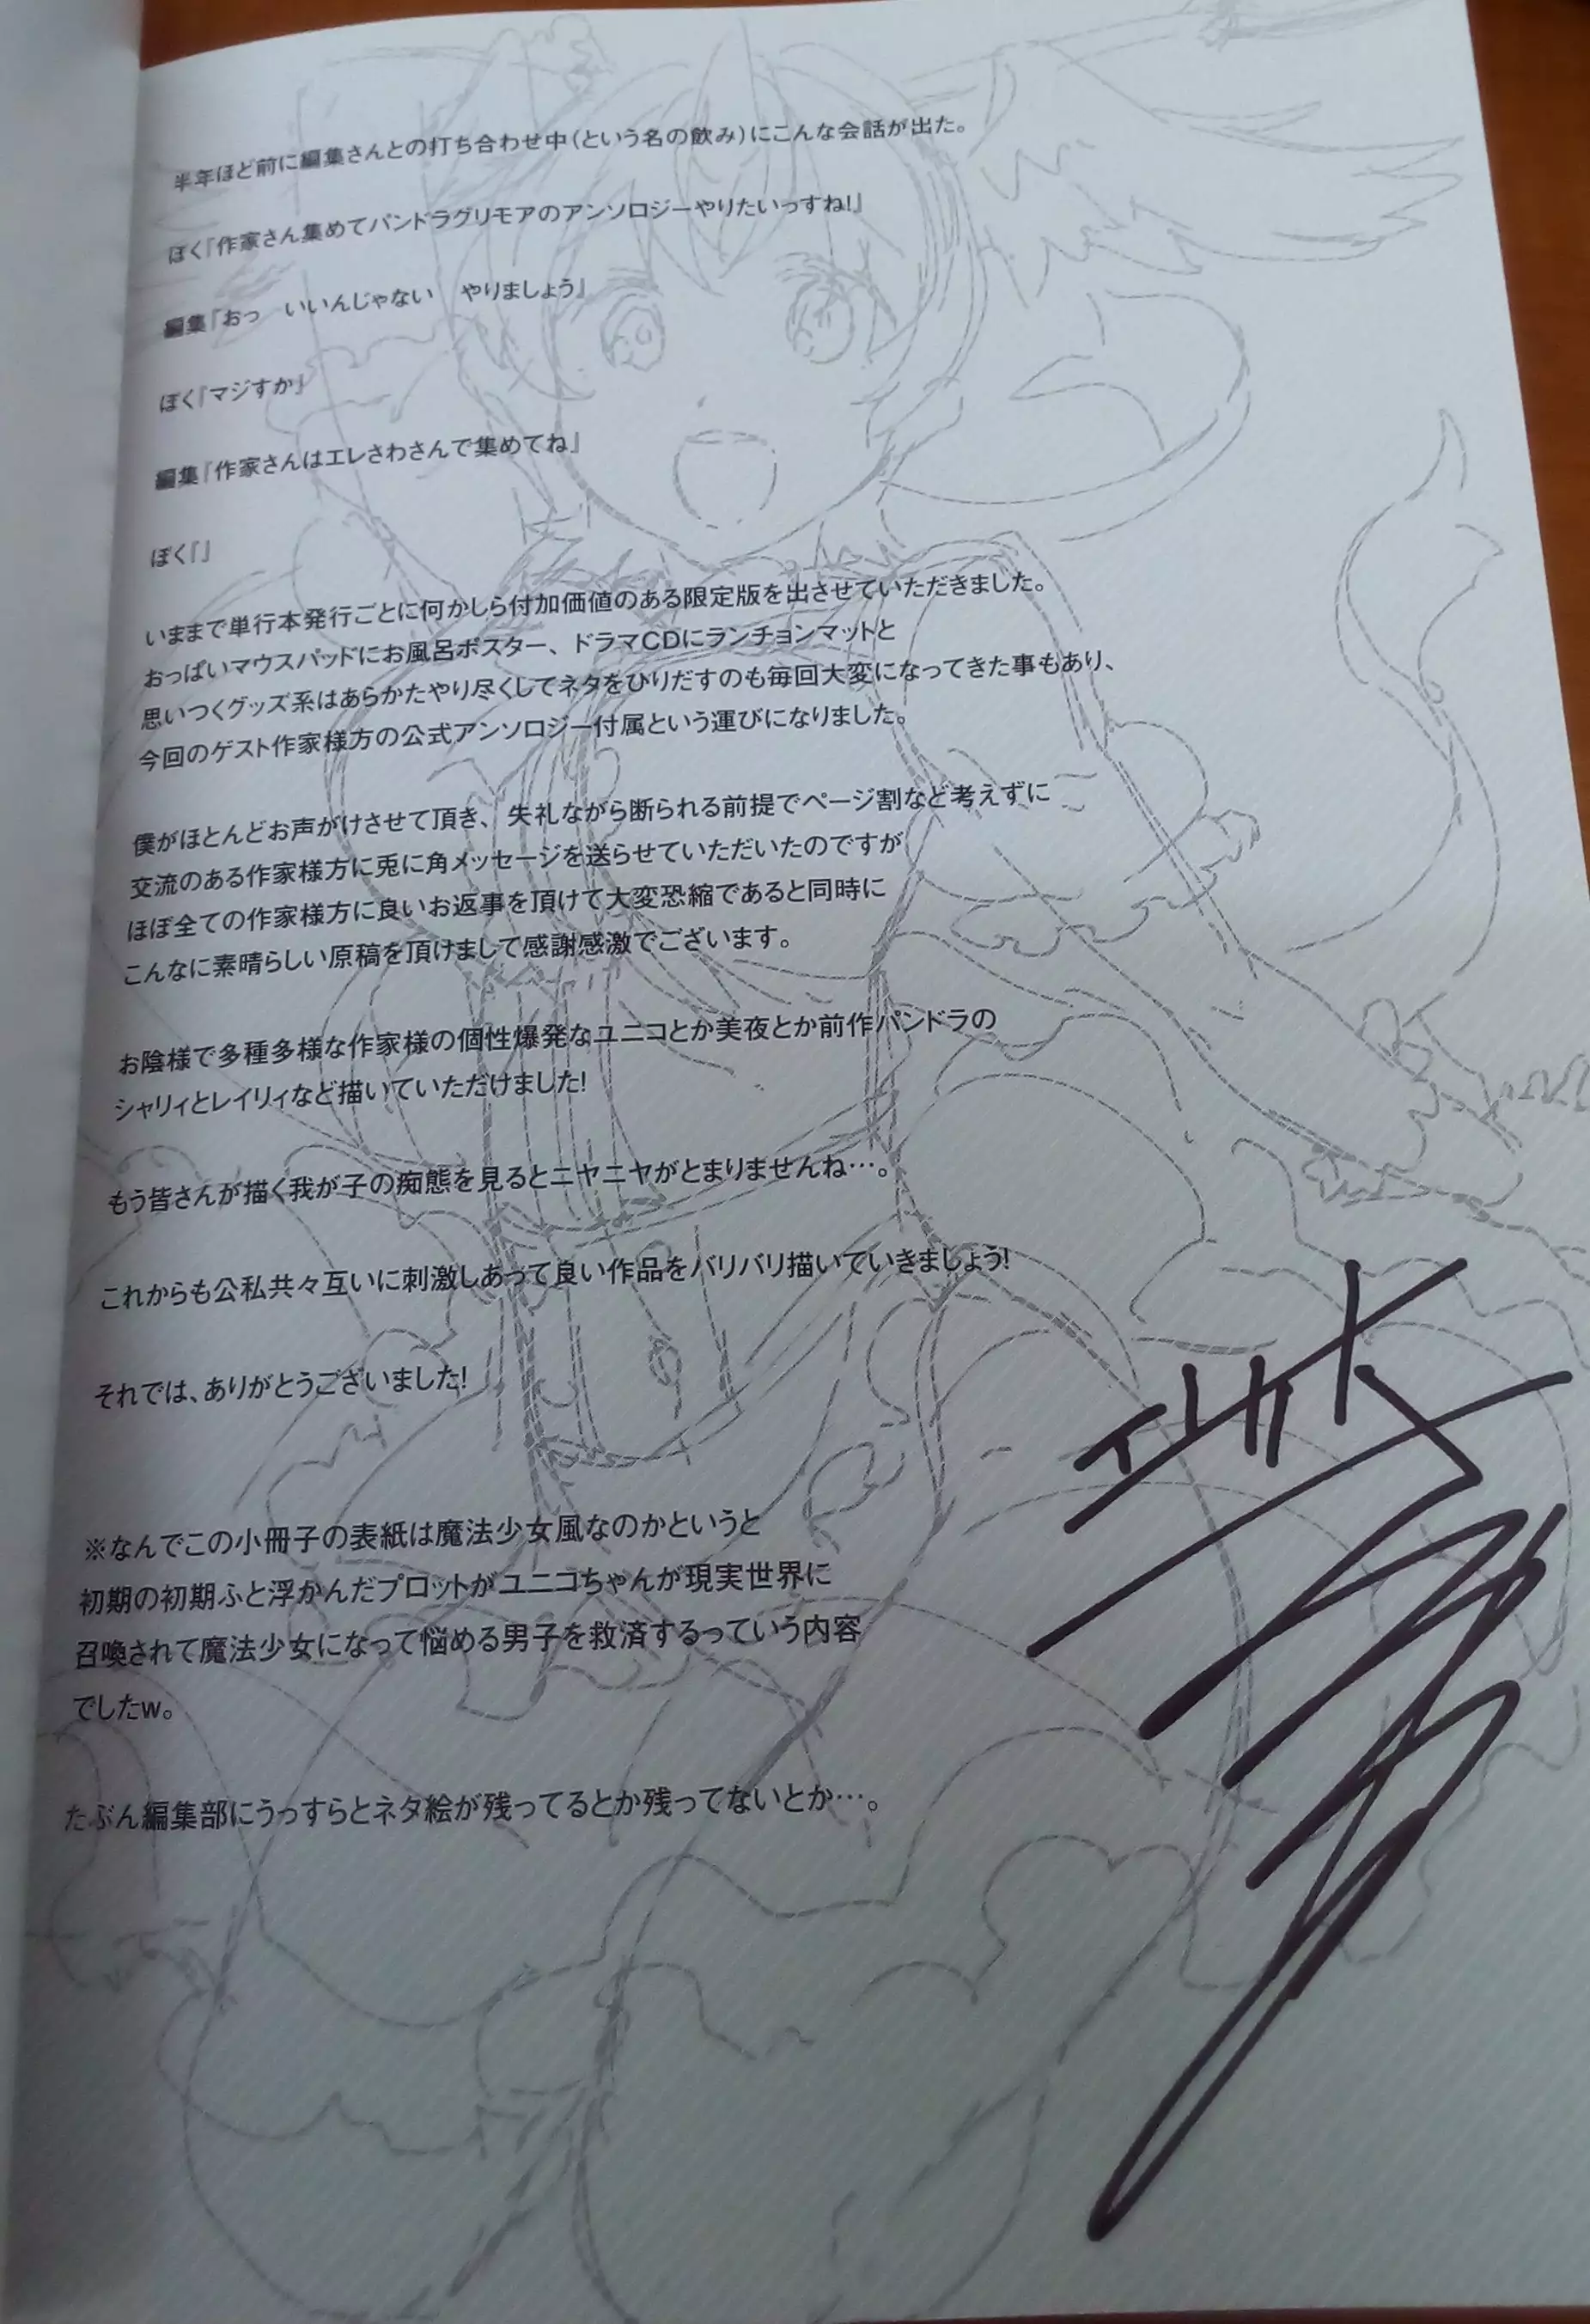 半年ほど前に編集さんとの打ち合わせ中(という名の飲み)にこんな会話が出た。
ぼく「作家さん集めてパンドラグリモアのアンソロジーやりたいっすね!」
編集「おっ　いいんじゃない　やりましょう」
ぼく「マジすか」
編集「作家さんはエレさわさんで集めてね」
ぼく「」
いままで単行本発行ごとに何かしら付加価値のある限定版を出させていただきました。
おっぱいマウスパッドにお風呂ポスター、ドラマCDにランチョンマットと
思いつくグッズ系はあらかたやり尽くしてネタをひりだすのも毎回大変になってきた事もあり、
今回のゲスト作家様方の公式アンソロジー付属という運びになりました。
僕がほとんどお声がけさせて頂き、失礼ながら断られる前提でページ割など考えずに
交流のある作家様方に兎に角メッセージを送らせていただいたのですが
ほぼ全ての作家様方に良いお返事を頂けて大変恐縮であると同時に
こんなに素晴らしい原稿を頂けまして感謝感激でございます。
お陰様で多種多様な作家様の個性爆発なユニコとか美夜とか前作パンドラの
シャリィとレイリィなど描いていただけました!
もう皆さんが描く我が子の痴態を見るとニヤニヤがとまりませんね…。
これからも公私共々互いに刺激しあって良い作品をバリバリ描いていきましょう!
それでは、ありがとうございました!
※なんでこの小冊子の表紙は魔法少女風なのかというと
初期の初期ふと浮かんだプロットがユニコちゃんが現実世界に
召喚されて魔法少女になって悩める男子を救済するっていう内容
でしたw。
たぶん編集部にうっすらとネタ絵が残ってるとか残ってないとか…。